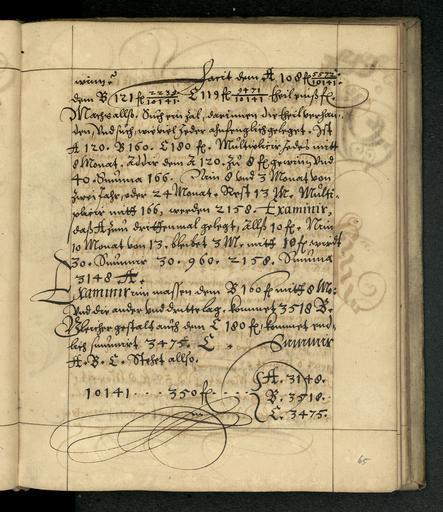 winn? Facit dem A 108 fl 5572/10141.
dem B 121 fl 2238/10141. C 119 fl 9471/10141 theil
Machs allso. Such ein zal, darinnen die theil
den, Und sich, wieviel jeder anfenglich gelegt. Ist
A 120. B 160. C 180 fl. Multiplicir jedes mitt
8 Monat. dem A 120. zu 8 fl gewin, Und
40. Summa 166. Nim 8 und 3 Monat von
zwei Jahr, oder 24 Monat. Rest 13 M. Multi-
plicir mitt 166, werden 2158. Examinir,
das A zum drittenmal gelegt, Alls 10 fl. Nim
10 Monat von 13. bleibet 3 M. mitt 10 fl wirdt
30. Summir 30. 960. 2158. Summa
3148 A.
Examinir massen dem B 160 fl mitt 8 Mo:
Und die ander und dritte lag. kommet 3518 B.
Gleicher gestalt auch dem C 180 fl, kommet end-
lich summirt 3475. C. Summir
A. B. C. Stehet allso.
A. 3148.
10141 . . . 350 fl . . . B. 3518.
C. 3475.
65